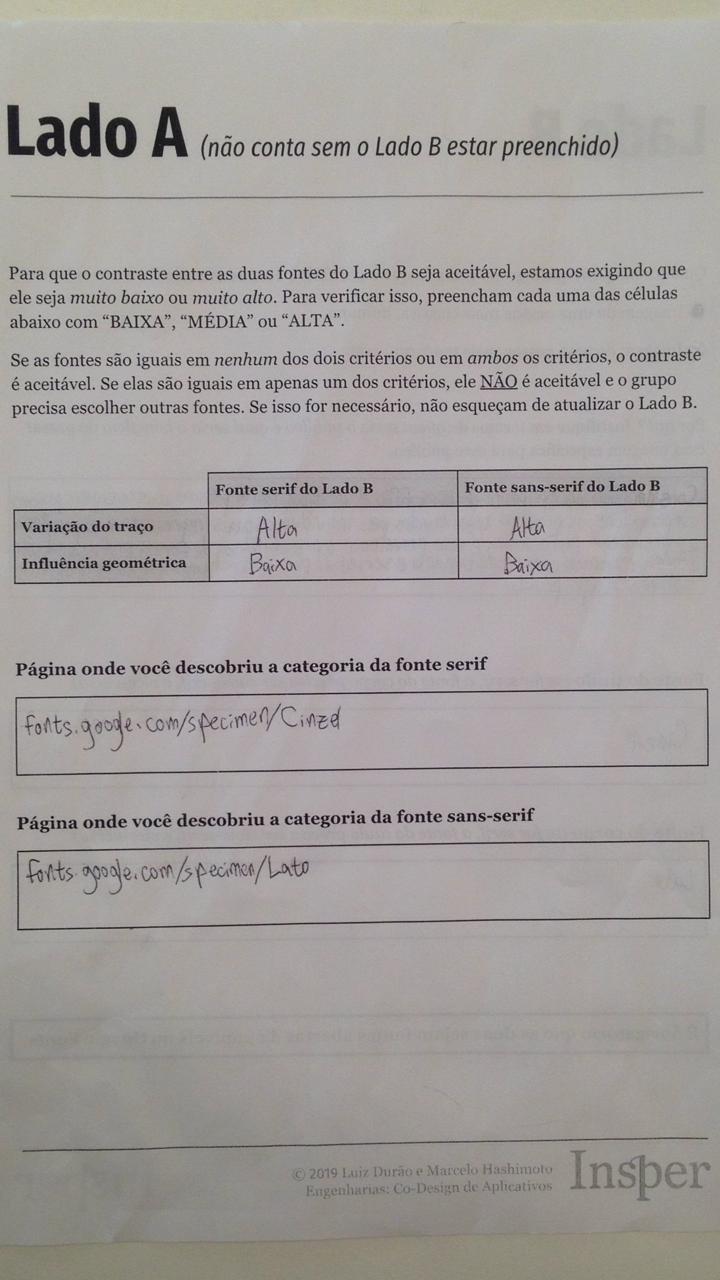 Lado A (não conta sem o Lado B estar preenchido)
Para que o contraste entre as duas fontes do Lado B seja aceitável, estamos exigindo que
ele seja muito baixo ou muito alto. Para verificar isso, preencham cada uma das células
abaixo com “BAIXA”, “MÉDIA” ou “ALTA”.
Se as fontes são iguais em nenhum dos dois critérios ou em ambos os critérios, o contraste
é aceitável. Se elas são iguais em apenas um dos critérios, ele NÃO é aceitável e o grupo
precisa escolher outras fontes. Se isso for necessário, não esqueçam de atualizar o Lado B.
Fonte serif do Lado B Fonte sans-serif do Lado B
Variação do traço Alta Alta
Influência geométrica Baixa Baixa
Página onde você descobriu a categoria da fonte serif
fonts.google.com/specimen/Cinzel
Página onde você descobriu a categoria da fonte sans-serif
fonts.google.com/specimen/Lato
© 2019 Luiz Durão e Marcelo Hashimoto
Engenharias: Co-Design de Aplicativos
Insper